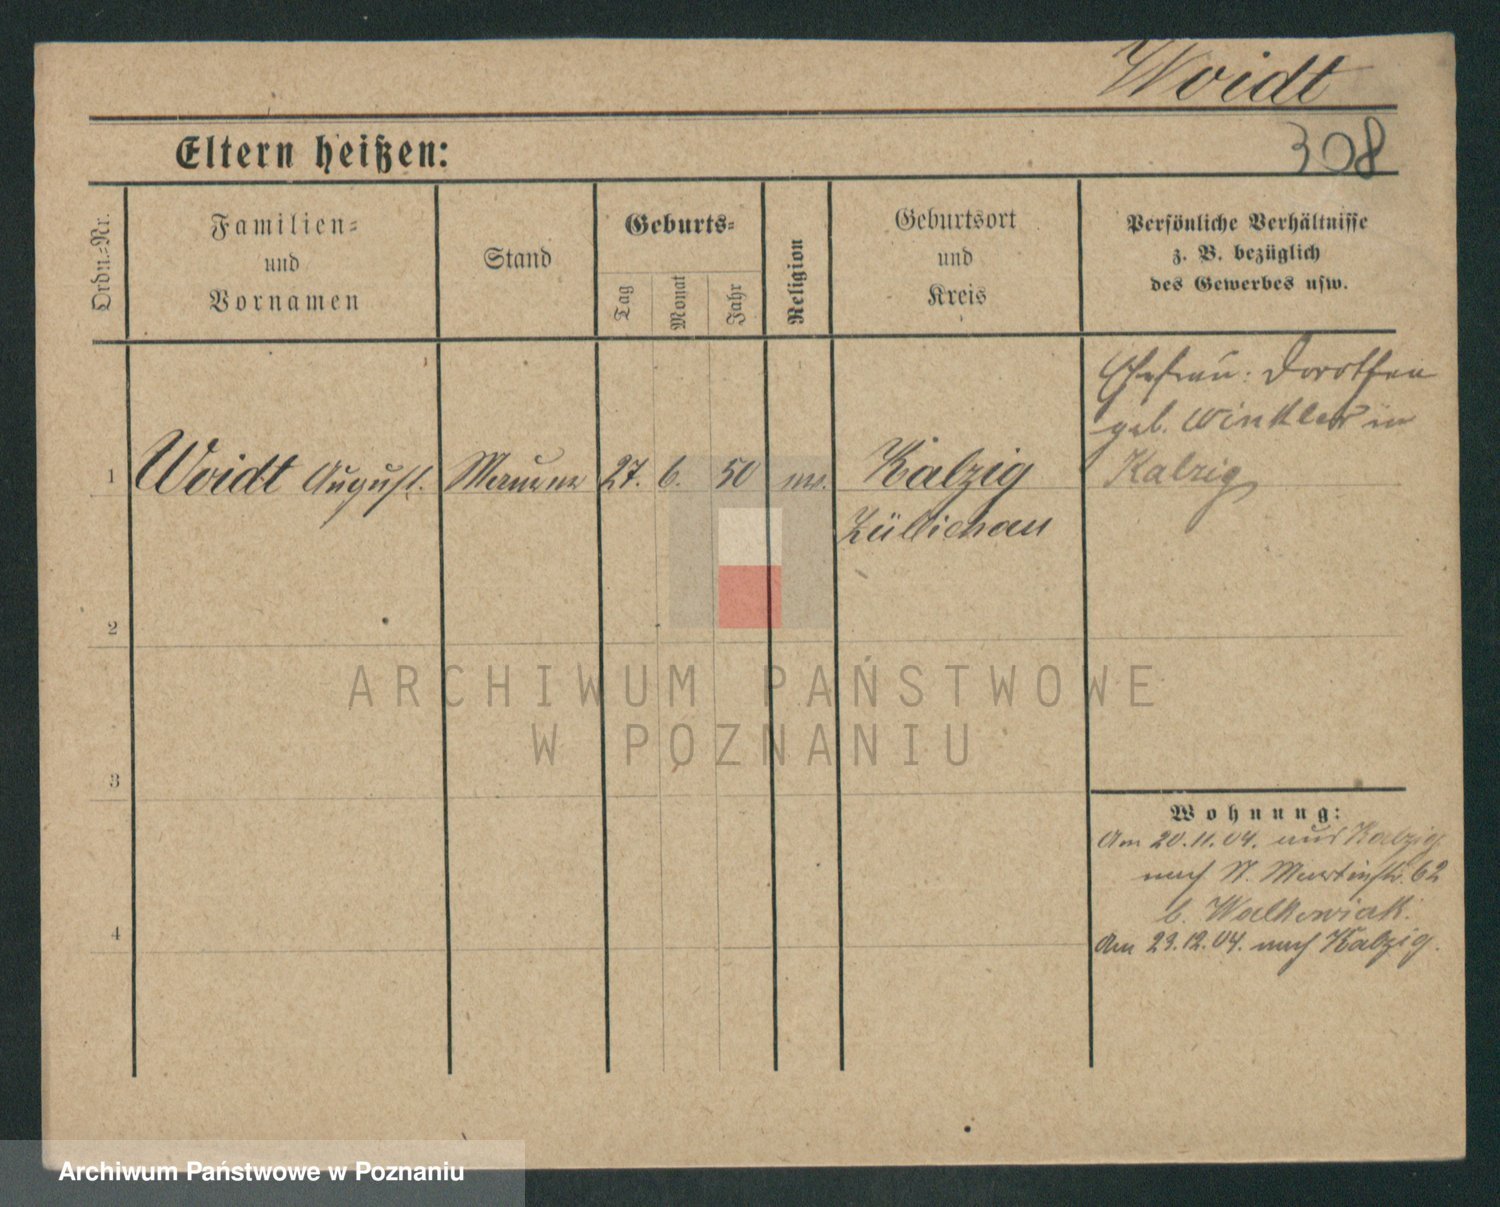 Woidt
308
Eltern heißen:
Ordn.-Nr.
Familien-
und
Vornamen
Stand
Geburts-
Tag
Monat
Jahr
Religion
Geburtsort
und
Kreis
Persönliche Verhältnisse
z. B. bezüglich
des Gewerbes usw.
1 Woidt August. Maurer 27. 6. 50 ev. Kalzig
Züllichau
Ehefrau: Dorothea
geb. Winkler in
Kalzig
2
3
4
Wohnung:
Am 20.11.04. aus Kalzig
nach St. Martinstr. 62
b. Walkowiak.
Am 23.12.04. nach Kalzig.
ARCHIWUM PAŃSTWOWE
W POZNANIU
Archiwum Państwowe w Poznaniu